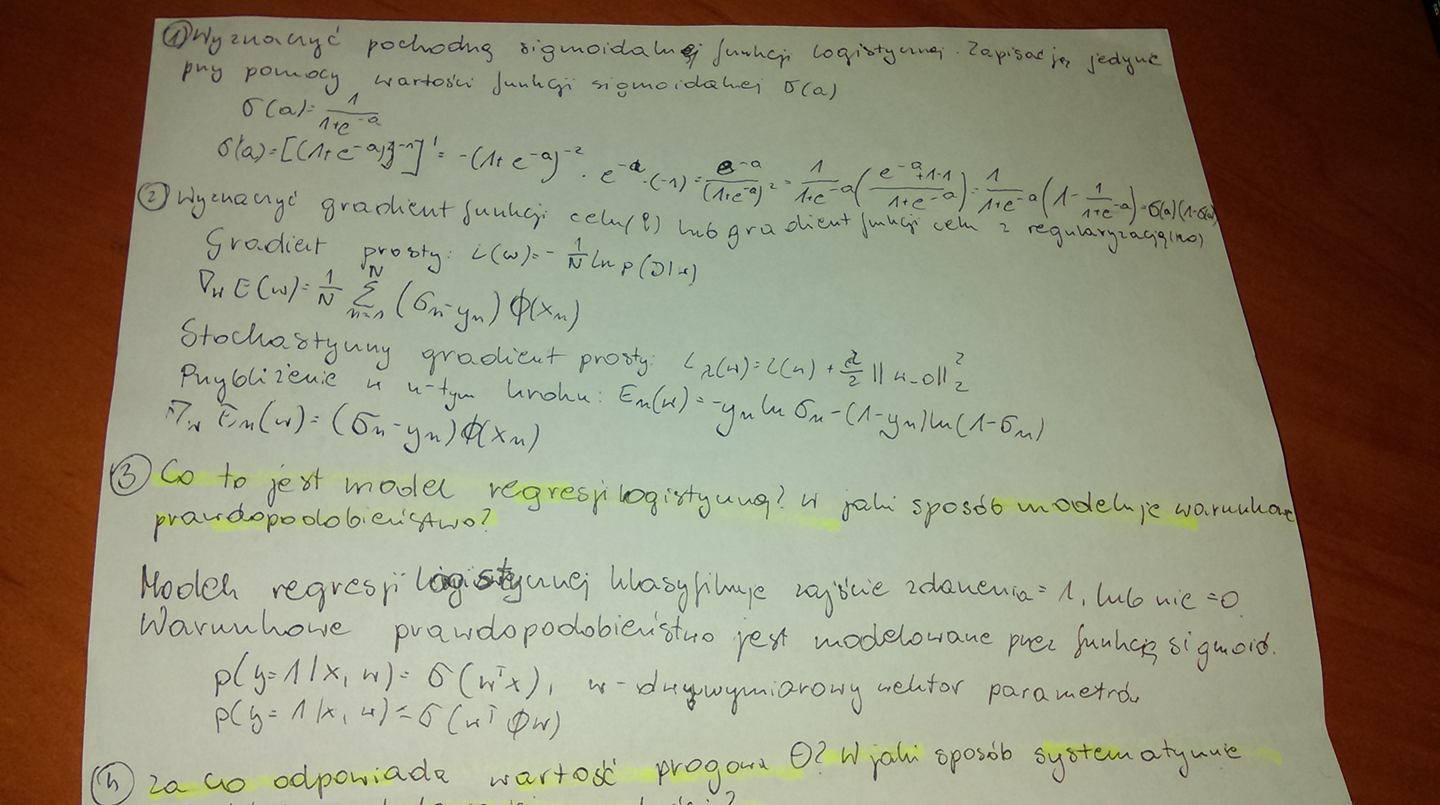 ① Wyznaczyć pochodną sigmoidalnej funkcji logistycznej. Zapisać ją jedynie
przy pomocy wartości funkcji sigmoidalnej σ(a)
σ(a) = 1/(1+e^-a)
σ'(a) = [(1+e^-a)^-1]' = -(1+e^-a)^-2 · e^-a · (-1) = e^-a/(1+e^-a)^2 = 1/(1+e^-a) ((e^-a+1-1)/(1+e^-a)) = 1/(1+e^-a) (1 - 1/(1+e^-a)) = σ(a)(1-σ(a))
② Wyznaczyć gradient funkcji celu (8) lub gradient funkcji celu z regularyzacją (10)
Gradient prosty: L(w) = -1/N ln p(D|w)
∇w E(w) = 1/N Σ_{n=1}^{N} (σn - yn) ϕ(xn)
Stochastyczny gradient prosty: Lλ(w) = L(w) + λ/2 ||w_0||_2^2
Przybliżenie w n-tym kroku: En(w) = -yn ln σn - (1-yn) ln(1-σn)
∇w En(w) = (σn - yn) ϕ(xn)
③ Co to jest model regresji logistyczną? W jaki sposób modeluje warunkowe
prawdopodobieństwo?
Model regresji logistycznej klasyfikuje zajście zdarzenia = 1, lub nie = 0
Warunkowe prawdopodobieństwo jest modelowane przez funkcję sigmoid.
p(y=1|x, w) = σ(w^T x), w - wymiarowy wektor parametrów
p(y=1|x, w) = σ(w^T ϕw)
④ Za co odpowiada wartość progowa Θ? W jaki sposób systematycznie